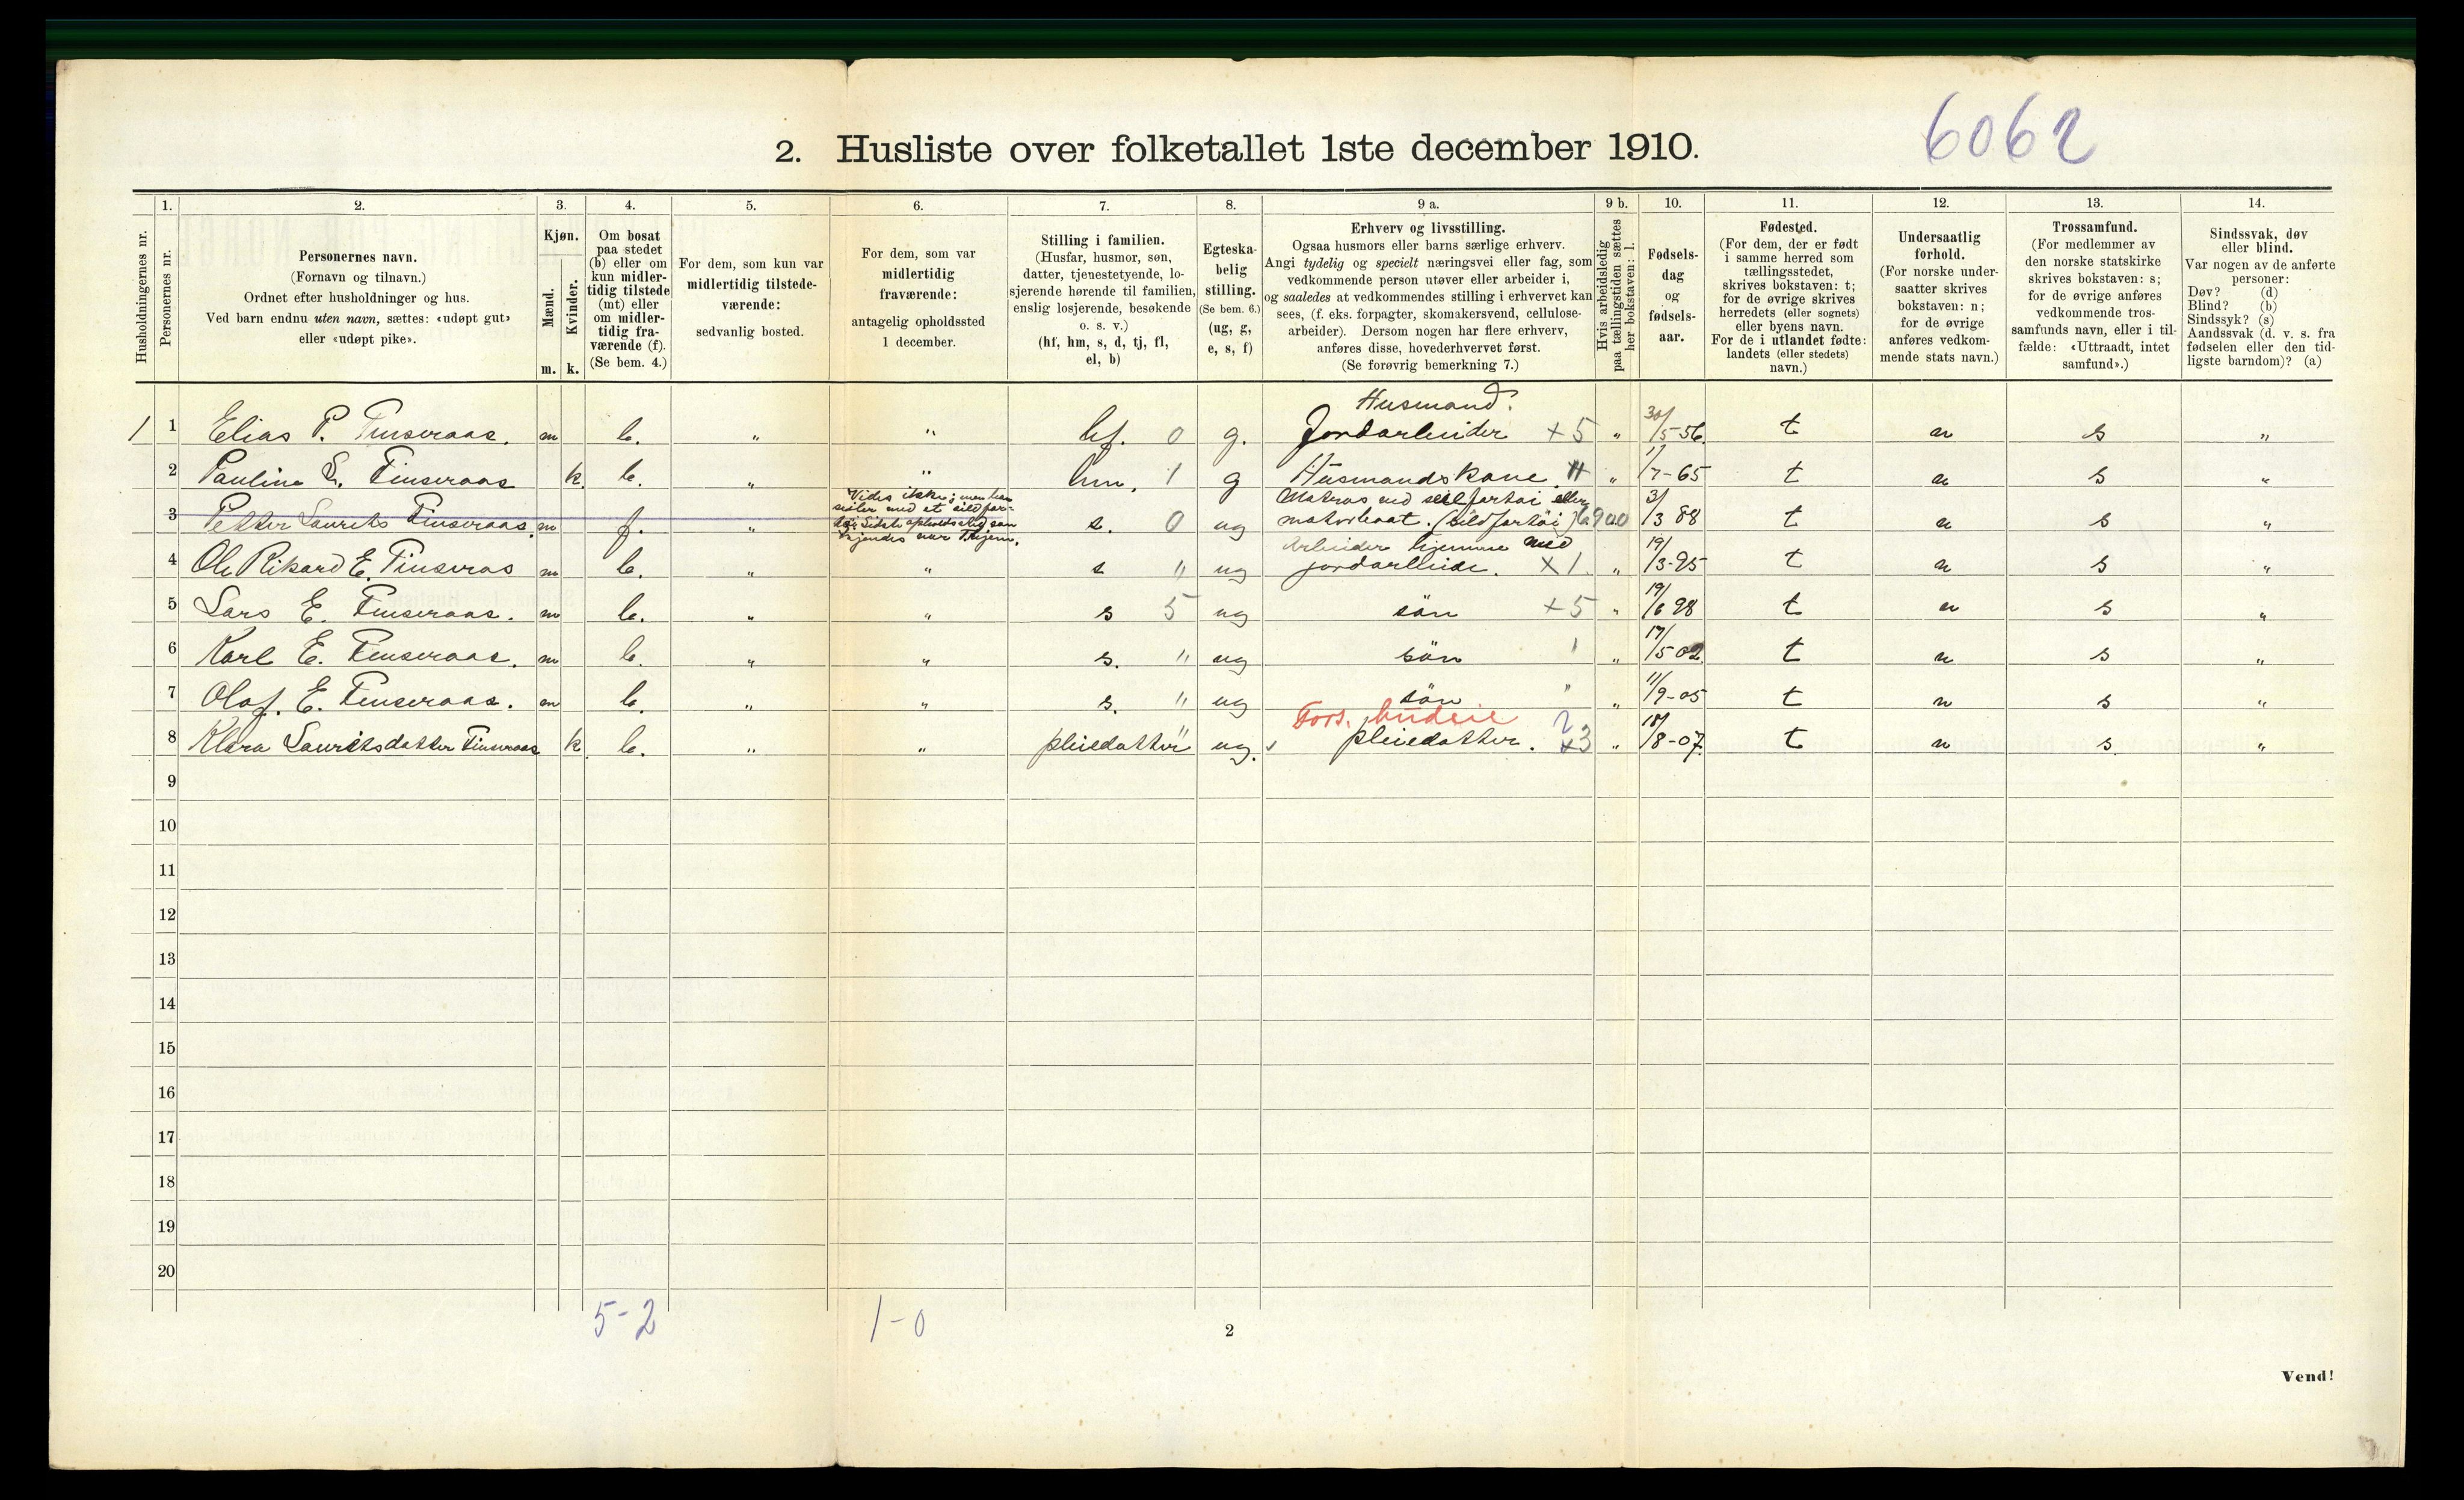 6062
2. Husliste over folketallet 1ste december 1910.
Husholdningernes nr.
1.
Personernes nr.
2.
Personernes navn.
(Fornavn og tilnavn.)
Ordnet efter husholdninger og hus.
Ved barn endnu uten navn, sættes: «udøpt gut»
eller «udøpt pike».
3.
Kjøn.
Mænd.
Kvinder.
m. k.
4.
Om bosat
paa stedet
(b) eller om
kun midler-
tidig tilstede
(mt) eller
om midler-
tidig fra-
værende (f).
(Se bem. 4.)
5.
For dem, som kun var
midlertidig tilstede-
værende:
sedvanlig bosted.
6.
For dem, som var
midlertidig
fraværende:
antagelig opholdssted
1 december.
7.
Stilling i familien.
(Husfar, husmor, søn,
datter, tjenestetyende, lo-
sjerende hørende til familien,
enslig losjerende, besøkende
o. s. v.)
(hf, hm, s, d, tj, fl,
el, b)
8.
Egteska-
belig
stilling.
(Se bem. 6.)
(ug, g,
e, s, f)
9 a.
Erhverv og livsstilling.
Ogsaa husmors eller barns særlige erhverv.
Angi tydelig og specielt næringsvei eller fag, som
vedkommende person utøver eller arbeider i,
og saaledes at vedkommendes stilling i erhvervet kan
sees, (f. eks. forpagter, skomakersvend, cellulose-
arbeider). Dersom nogen har flere erhverv,
anføres disse, hovederhvervet først.
(Se forøvrig bemerkning 7.)
9 b.
Hvis arbeidsledig
paa tællingstiden sættes
her bokstaven: l.
10.
Fødsels-
dag
og
fødsels-
aar.
11.
Fødested.
(For dem, der er født
i samme herred som
tællingsstedet,
skrives bokstaven: t;
for de øvrige skrives
herredets (eller sognets)
eller byens navn.
For de i utlandet fødte:
landets (eller stedets)
navn.)
12.
Undersaatlig
forhold.
(For norske under-
saatter skrives
bokstaven: n;
for de øvrige
anføres vedkom-
mende stats navn.)
13.
Trossamfund.
(For medlemmer av
den norske statskirke
skrives bokstaven: s;
for de øvrige anføres
vedkommende tros-
samfunds navn, eller i til-
fælde: «Uttraadt, intet
samfund».)
14.
Sindssvak, døv
eller blind.
Var nogen av de anførte
personer:
Døv? (d)
Blind? (b)
Sindssyk? (s)
Aandssvak (d. v. s. fra
fødselen eller den tid-
ligste barndom)? (a)
Husmand.
1 1 Elias P. Finseraas. m b. " " hf. 0 g. Jordarbeider +5 " 30/5-56 t n s "
2 Paulina L. Finseraas k. b. " " hm. 1 g Husmandskone. " 1/7-65 t n s "
Vides ikke; men han
seiler med et sildfar-
tøi. Sidste opholdssted som
kjendes var Thjem.
Matros med seilfartøi eller
3 Petter Laurits Finseraas. m f. s. 0 ug motorbaat. (sildfartøi) 6900 3/3 88 t n s "
Arbeider hjemme med
4 Ole Rikard E. Finseraas m b. " " s " ug jordarbeide. X1. " 19/3-95 t n s "
5 Lars E. Finseraas. m b. " " s 5 ug søn +5 " 19/6 98 t n s "
6 Karl E. Finseraas. m b. " " s. " ug søn 1 " 17/5-02. t n s "
7 Olaf. E. Finseraas. m b. " " s. " ug søn " " 11/9-05 t n s "
Fors. budeie 2
8 Klara Lauritsdatter Finseraas k b. " " pleiedatter " ug. pleiedatter. +3 " 18/8-07. t n s "
9
10
11
12
13
14
15
16
17
18
19
20
5-2 1-0
2
Vend!